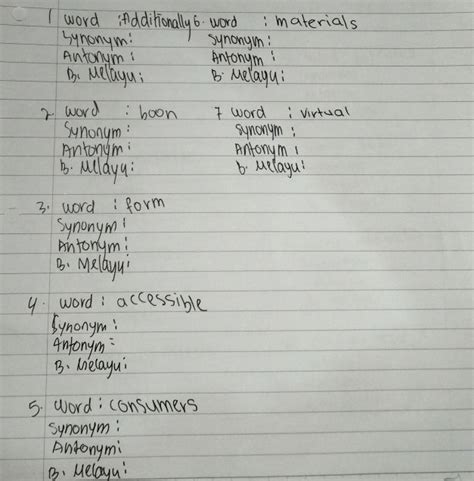 1 word : Additionally 6. word : materials
Synonym : Synonym :
Antonym : Antonym :
B. Melayu : B. Melayu :
2 word : boon 7 word : virtual
Synonym : Synonym :
Antonym : Antonym :
B. Melayu : B. Melayu :
3. word : form
Synonym :
Antonym :
B. Melayu :
4. word : accessible
Synonym :
Antonym :
B. Melayu :
5. word : consumers
Synonym :
Antonym :
B. Melayu :